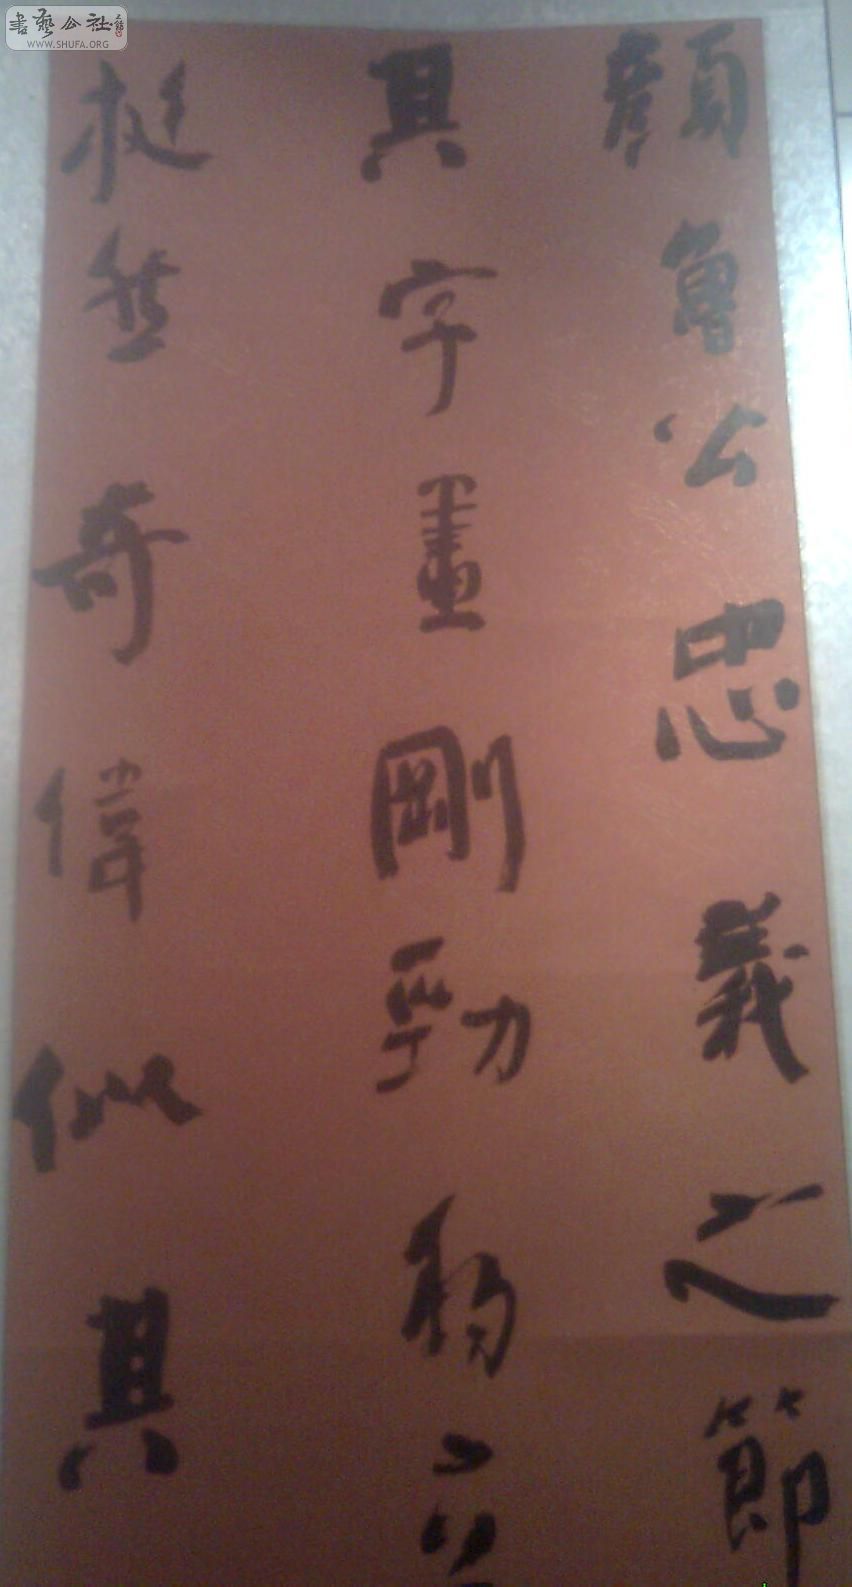 書藝公社
WWW.SHUFA.ORG
顏魯公忠義之節
其字畫剛勁獨立
挺然奇偉似其